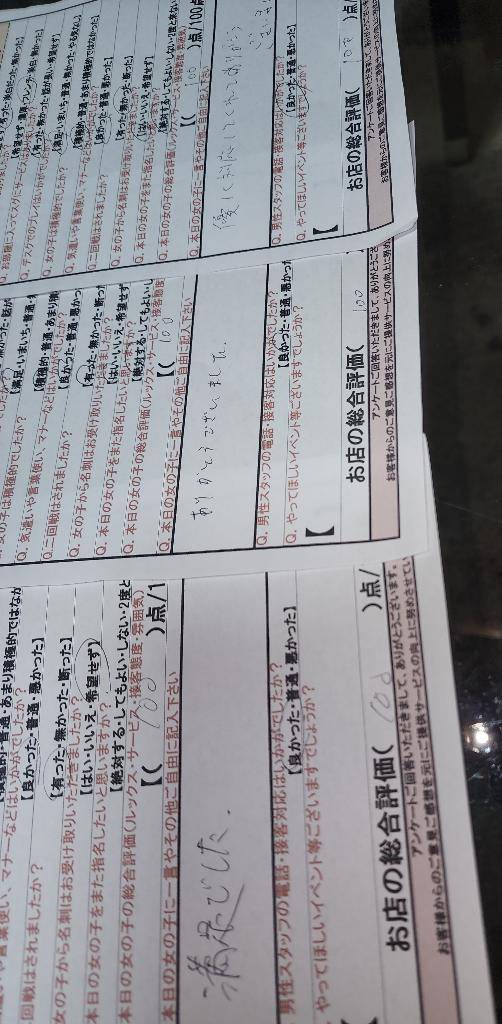 Q. お部屋に入ってスグにサービスは
【希望せず・濃厚・フレンチ・
Q. デスクでのプレイはいかがでしたか?
Q. 女の子は積極的でしたか?
【満足・いまいち・普通・無かった・やる気なし】
Q. 気遣いや言葉使い、マナーなどは
【積極的・普通・あまり積極的ではなかった】
【良かった・普通・悪かった】
Q. 二回戦はされましたか?
【有った・無かった・断った】
Q. 女の子から名刺はお受け取り
【はい・いいえ・希望せず】
Q. 本日の女の子をまた指名したい
【絶対する・してもよい・しない・2度と来ない
Q. 本日の女の子の総合評価(ルックス・サービス・接客態度・雰囲気)
【( 100 )点/100点
Q. 本日の女の子に一言やその他ご自由に記入下さい
Q. 男性スタッフの電話・接客対応はいかがでしたか?
【良かった・普通・悪かった】
Q. やってほしいイベント等ございますでしょうか?
【
お店の総合評価( 100 )点/
アンケートご回答いただきまして、ありがとうござ
お客様からのご意見ご感想を元にご提供サービスの向上に努め
女の子は積極的でしたか?
【満足・いまいち・普通・
Q. 気遣い言葉使い、マナーなどはいかがでしたか?
【積極的・普通・あまり積
Q. 二回戦はされましたか?
【良かった・普通・悪かった】
Q. 女の子から名刺はお受け取りいただきましたか?
【有った・無かった・断っ
Q. 本日の女の子をまた指名したいと思いますか?
【はい・いいえ・希望せず
Q. 本日の女の子の総合評価(ルックス・サービス・接客態度
【絶対する・してもよい・し
【( 100
Q. 本日の女の子に一言やその他ご自由に記入下さい
ありがとうございました。
Q. 男性スタッフの電話・接客対応はいかがでしたか?
【良かった・普通・悪かっ
Q. やってほしいイベント等ございますでしょうか?
【
お店の総合評価( 100
アンケートご回答いただきまして、ありがとうござ
お客様からのご意見ご感想を元にご提供サービスの向上に努め
い言葉使い、マナーなどはいかがでしたか?
積極的・普通・あまり積極的ではなか
回戦はされましたか?
【良かった・普通・悪かった】
女の子から名刺はお受け取りいただきましたか?
【有った・無かった・断った】
本日の女の子をまた指名したいと思いますか?
【はい・いいえ・希望せず】
本日の女の子の総合評価(ルックス・サービス・接客態度・雰囲気)
【絶対する・してもよい・しない・2度と
【( 100 )点/1
本日の女の子に一言やその他ご自由に記入下さい
満足でした。
男性スタッフの電話・接客対応はいかがでしたか?
【良かった・普通・悪かった】
やってほしいイベント等ございますでしょうか?
【
お店の総合評価( 100 )点/
アンケートご回答いただきまして、ありがとうございます。
お客様からのご意見ご感想を元にご提供サービスの向上に努めさせてい